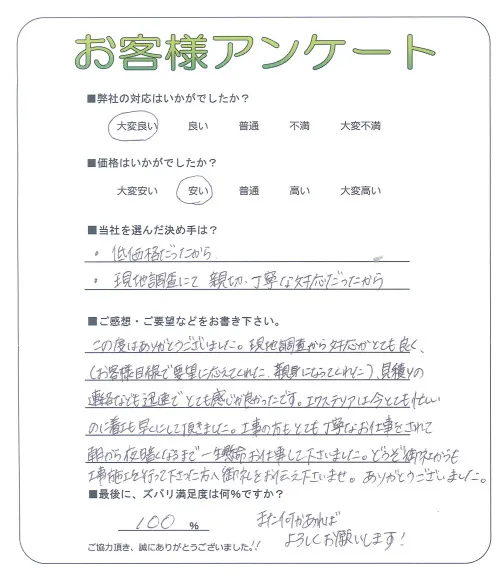 お客様アンケート
■弊社の対応はいかがでしたか？
大変良い 良い 普通 不満 大変不満
■価格はいかがでしたか？
大変安い 安い 普通 高い 大変高い
■当社を選んだ決め手は？
・低価格だったから
・現地調査にて 親切、丁寧な対応だったから
■ご感想・ご要望などをお書き下さい。
この度はありがとうございました。現地調査から対応がとても良く、
(お客様目線で要望に応えてくれた、親身になってくれた)、見積りの
連絡なども迅速でとても感じが良かったです。エクステリアは今とても忙しい
のに着工も早くにして頂きました。工事の方もとても丁寧なお仕事をされて
朝から夜暗くなるまで一生懸命お仕事して下さいました。どうぞ御社からも
工事施工を行って下さった方へ御礼をお伝え下さいませ。ありがとうございました。
■最後に、ズバリ満足度は何%ですか？
100 %
また何かあれば
よろしくお願いします！
ご協力頂き、誠にありがとうございました。!!